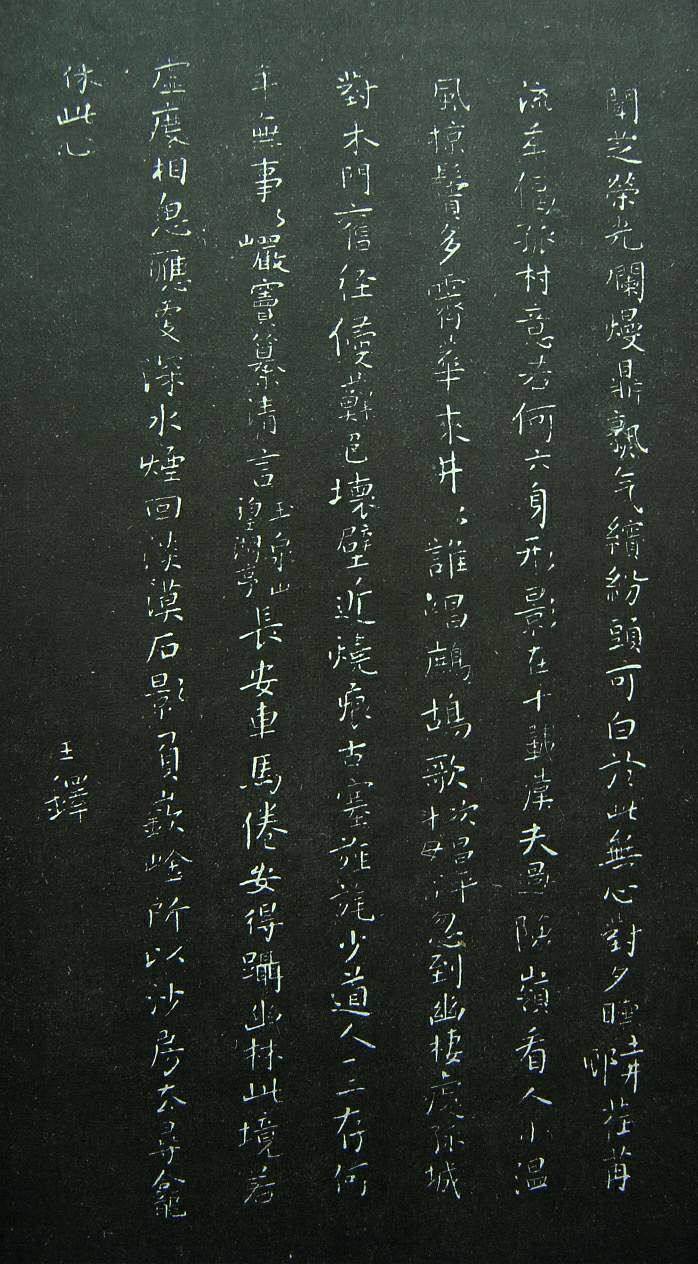 閒芝榮光爛熳鼎飄气繽紛頭可白於此無心對夕曛 耶莊苒
流年何孤村意若何六身形影在十載葉夫過險嶺看人小溫
風掠鬢多霽華來井〻誰唱鷓鴣歌 次昌平 忽到幽棲處孫城
對木門舊径侵蘚邑壞壁近燒痕古塞旌旄少道人一二存何
年無事〻巖竇纂清言 玉泉山望湖亭 長安車馬倦安得躡幽林此境若
虛度相思應更深水煙回淡漠石影負嶔崟所以沙房去尋龕
休此心
王鐸